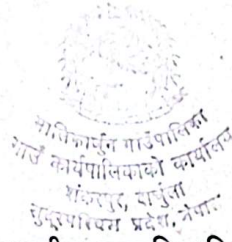 मालिकार्जुन गाउँपालिका
गाउँ कार्यपालिकाको कार्यालय
दार्चुला
सुदूरपश्चिम प्रदेश, नेपाल